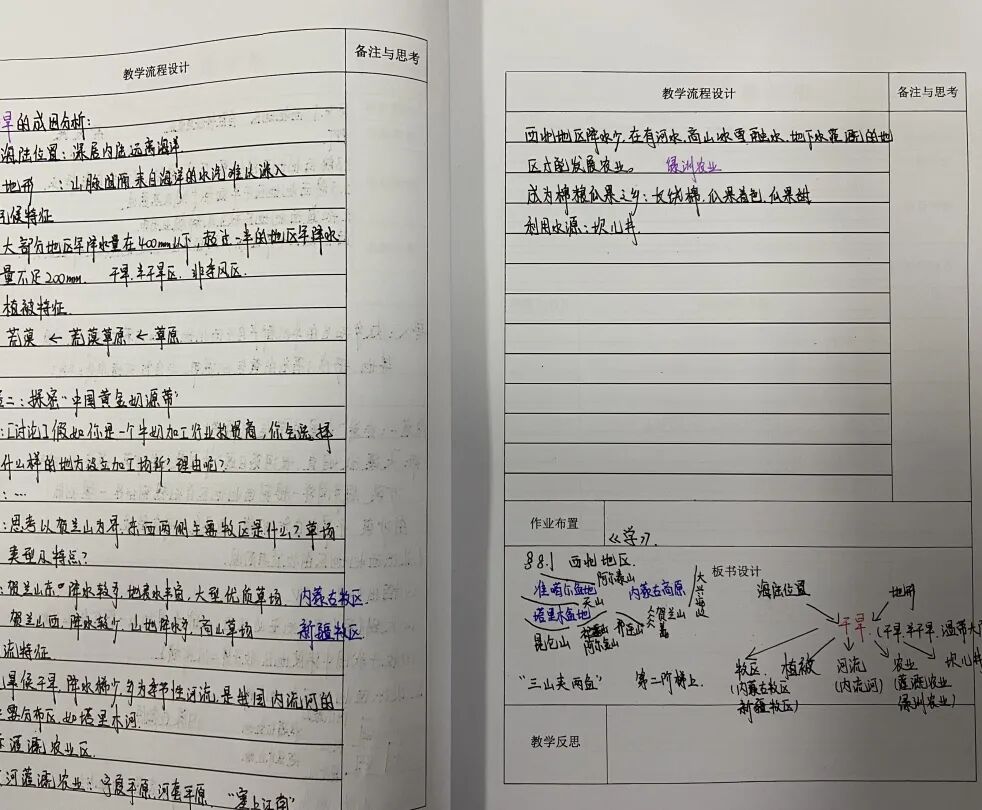 教学流程设计
备注与思考
旱的成因分析：
海陆位置：深居内陆远离海洋
地形：山脉阻隔来自海洋的水汽难以深入
候特征
大部分地区年降水量在400mm以下，超过一半的地区年降水
量不足200mm. 干旱.半干旱区. 非季风区.
植被特征
荒漠 ← 荒漠草原 ← 草原
二：探密"中国黄金奶源带"
：[讨论]假如你是一个牛奶加工行业投资商，你会选择
什么样的地方设立加工场所？理由呢？
：…
：思考以贺兰山为界，东西两侧主要牧区是什么？草场
类型及特点？
：贺兰山东：降水较多，地表水丰富，大型优质草场. 内蒙古牧区.
贺兰山西：降水较少，山地降水多：高山草场 新疆牧区
流特征
气候干旱，降水稀少，多为季节性河流，是我国内流河的
主要分布区，如塔里木河.
灌溉农业区.
河灌溉农业：宁夏平原.河套平原. "塞上江南"
教学流程设计
备注与思考
西北地区降水少，在有河水、高山冰雪融水、地下水灌溉的地
区才能发展农业。 绿洲农业
成为棉粮瓜果之乡：长绒棉，瓜果着色，瓜果甜
利用水源：坎儿井.
作业布置
《学》.
板书设计
§8.1 西北地区.
阿尔泰山
准噶尔盆地
内蒙古高原
大兴安岭
天山
塔里木盆地
贺兰山
祁连山
昆仑山
阿尔金山
"三山夹两盆" 第二阶梯上.
海陆位置
地形
干旱.（干旱.半干旱.温带大
牧区 植被 河流 农业 坎儿井
（内蒙古牧区 （内流河） （灌溉农业
新疆牧区） 绿洲农业）
教学反思